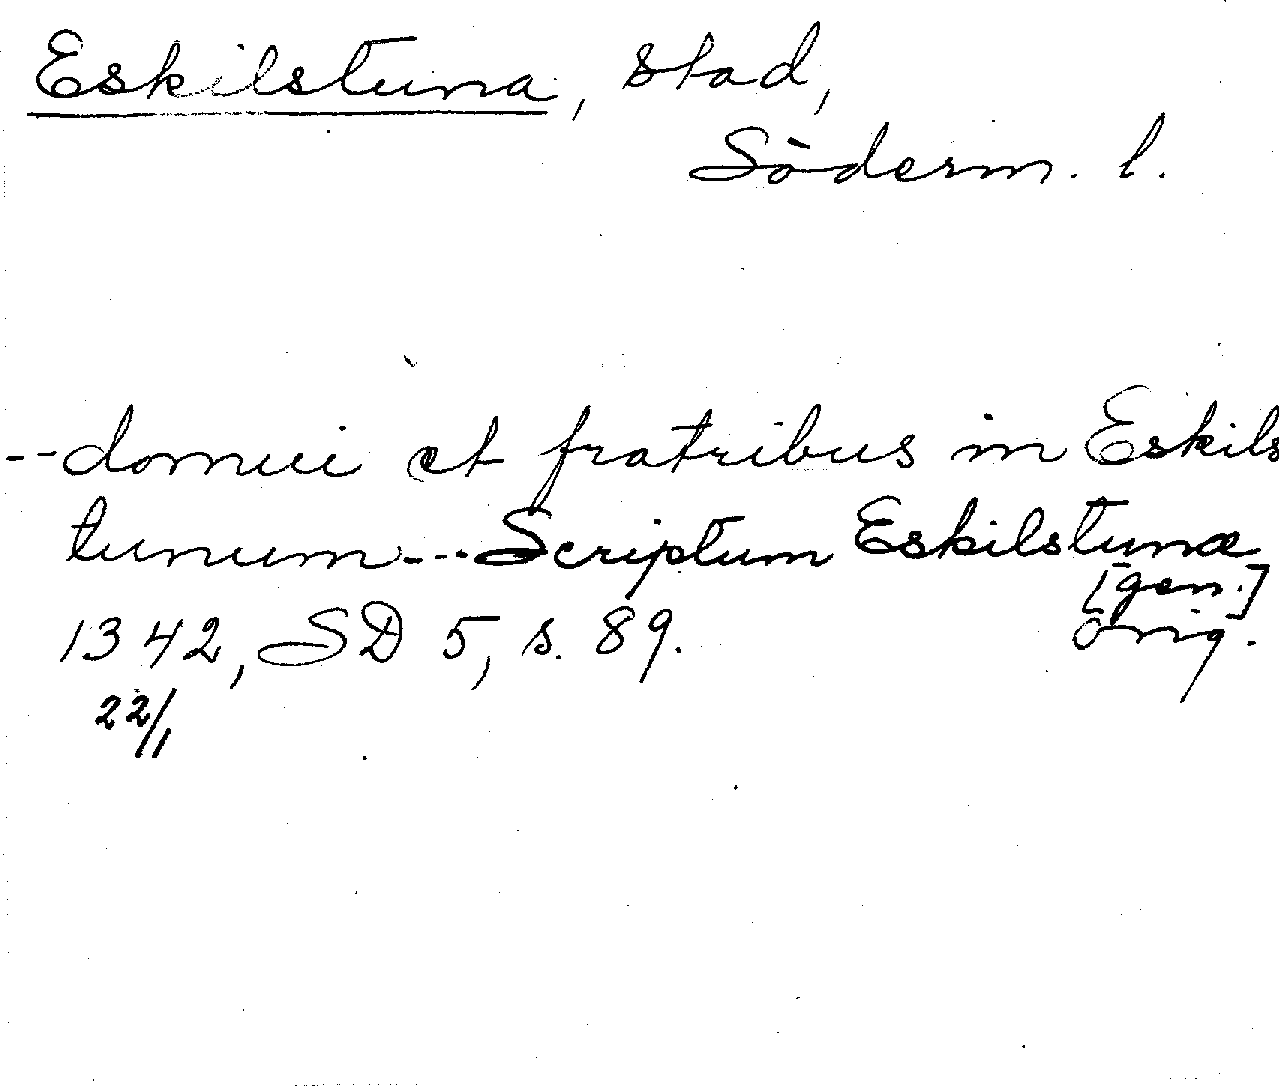 Eskilstuna, stad,
Söderm. l.
--domui et fratribus in Eskils
tunum---Scriptum Eskilstunæ
[gen.]
1342, SD 5, s. 89. orig.
22/1